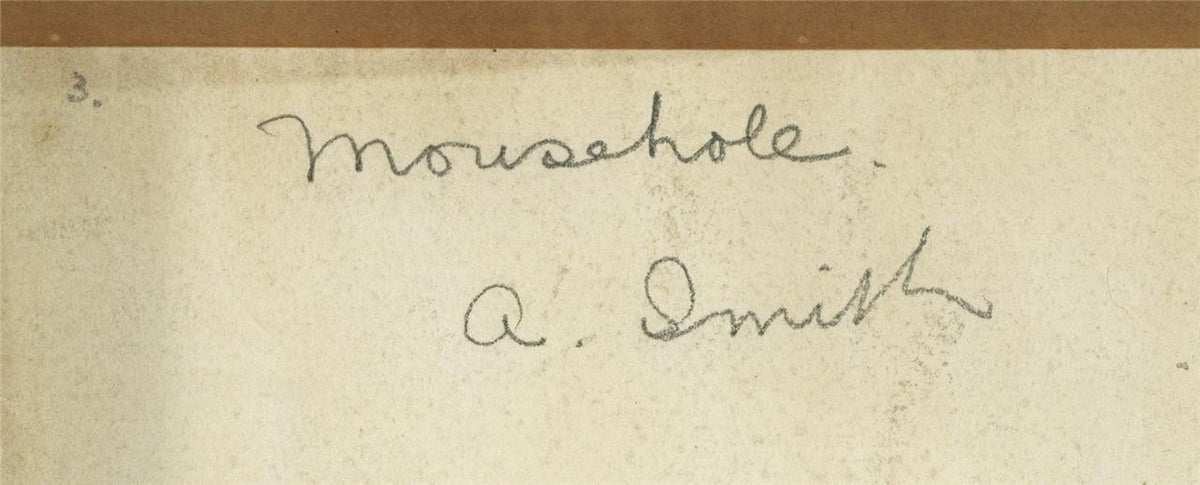 3.
Mousehole.
A. Smith